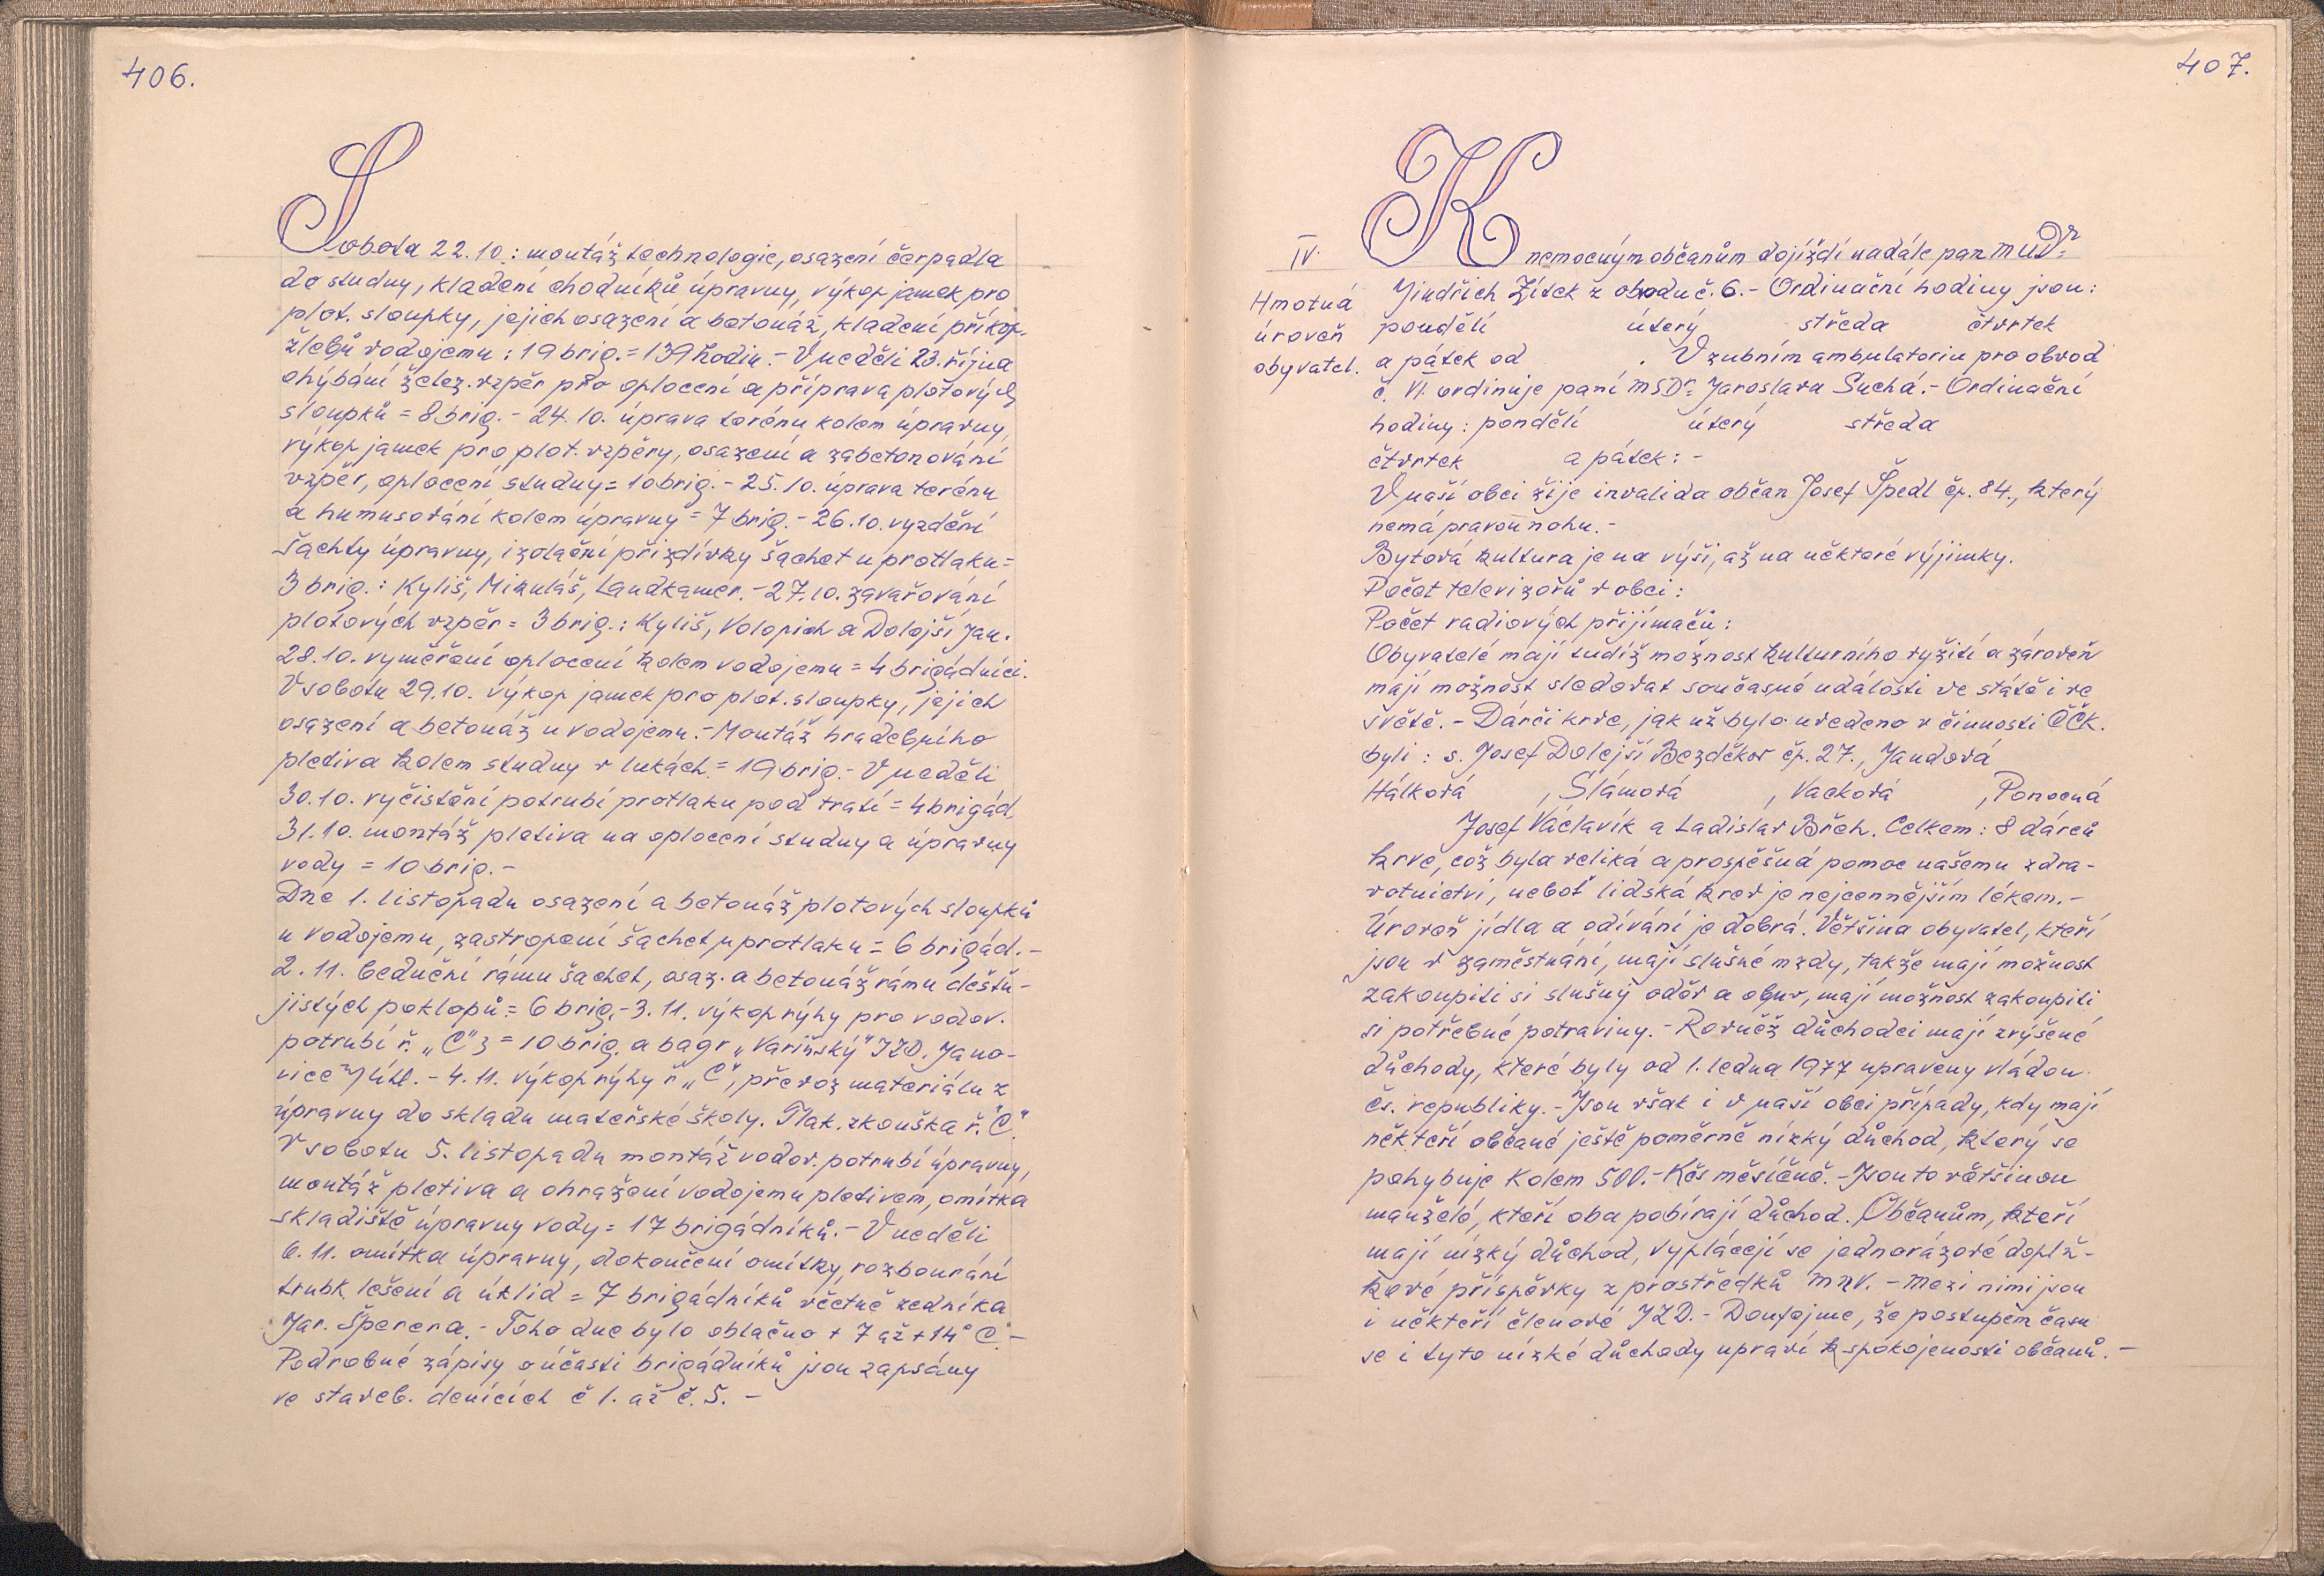 406.
Sobota 22.10.: montáž technologie, osazení čerpadla
do studny, kladení chodníků úpravny, výkop jamek pro
plot. sloupky, jejich osazení a betonáž, kladení příkop.
žlebů vodojemu: 19 brig. = 139 hodin. - V neděli 23. října
ohýbání želez. vzpěr pro oplocení a příprava plotových
sloupků = 8 brig. - 24.10. úprava terénu kolem úpravny,
výkop jamek pro plot. vzpěry, osazení a zabetonování
vzpěr, oplocení studny = 10 brig. - 25.10. úprava terénu
a humusování kolem úpravny = 7 brig. - 26.10. vyzdění
šachty úpravny, izolační přizdívky šachet u protlaku =
3 brig.: Kyliš, Mikuláš, Landkamer. - 27.10. zavařování
plotových vzpěr = 3 brig.: Kyliš, Volopich a Dolejší Jan.
28.10. vyměření oplocení kolem vodojemu = 4 brigádníci.
V sobotu 29.10. výkop jamek pro plot. sloupky, jejich
osazení a betonáž u vodojemu. - Montáž hradebního
pletiva kolem studny v lukách. = 19 brig. - V neděli
30.10. vyčistění potrubí protlaku pod tratí = 4 brigád.
31.10. montáž pletiva na oplocení studny a úpravny
vody = 10 brig. -
Dne 1. listopadu osazení a betonáž plotových sloupků
u vodojemu, zastropení šachet u protlaku = 6 brigád. -
2.11. bednění rámu šachet, osaz. a betonáž rámu dešťu-
jistých poklopů = 6 brig. - 3.11. výkop rýhy pro vodov.
potrubí ř. "C" 3 = 10 brig. a bagr "Variňský" JZD. Jano-
vice n/Úhl. - 4.11. výkop rýhy ř. "C", převoz materiálu z
úpravny do skladu mateřské školy. Tlak. zkouška ř. "C"
V sobotu 5. listopadu montáž vodov. potrubí úpravny,
montáž pletiva a ohražení vodojemu pletivem, omítka
skladiště úpravny vody = 17 brigádníků. - V neděli
6.11. omítka úpravny, dokončení omítky, rozbourání
trubk. lešení a úklid = 7 brigádníků včetně zedníka
Jar. Šperera. - Toho dne bylo oblačno + 7 až + 14° C. -
Podrobné zápisy o účasti brigádníků jsou zapsány
ve staveb. denících č 1. až č. 5. -
407.
IV.
Hmotná
úroveň
obyvatel.
K nemocným občanům dojíždí nadále pan MUDr
Jindřich Zítek z obvodu č. 6. - Ordinační hodiny jsou:
pondělí úterý středa čtvrtek
a pátek od . V zubním ambulatoriu pro obvod
č. VI. ordinuje paní MSDr Jaroslava Suchá. - Ordinační
hodiny: pondělí úterý středa
čtvrtek a pátek: -
V naší obci žije invalida občan Josef Špedl čp. 84., který
nemá pravou nohu. -
Bytová kultura je na výši, až na některé výjimky.
Počet televizorů v obci:
Počet radiových přijímačů:
Obyvatelé mají tudíž možnost kulturního vyžití a zároveň
mají možnost sledovat současné události ve státě i ve
světě. - Dárci krve, jak už bylo uvedeno v činnosti ČČK.
byli: s. Josef Dolejší Bezděkov čp. 27., Jandová
Hálková , Slámová , Vacková , Ponocná
Josef Václavík a Ladislav Břch. Celkem: 8 dárců
krve, což byla veliká a prospěšná pomoc našemu zdra-
votnictví, neboť lidská krev je nejcennějším lékem. -
Úroveň jídla a odívání je dobrá. Většina obyvatel, kteří
jsou v zaměstnání, mají slušné mzdy, takže mají možnost
zakoupiti si slušný oděv a obuv, mají možnost zakoupiti
si potřebné potraviny. - Rovněž důchodci mají zvýšené
důchody, které byly od 1. ledna 1977 upraveny vládou
čs. republiky. - Jsou však i v naší obci případy, kdy mají
někteří občané ještě poměrně nízký důchod, který se
pohybuje kolem 500.- Kčs měsíčně. - Jsou to většinou
manželé, kteří oba pobírají důchod. Občanům, kteří
mají nízký důchod, vyplácejí se jednorázové doplň-
kové příspěvky z prostředků MNV. - Mezi nimi jsou
i někteří členové JZD. - Doufejme, že postupem času
se i tyto nízké důchody upraví k spokojenosti občanů. -